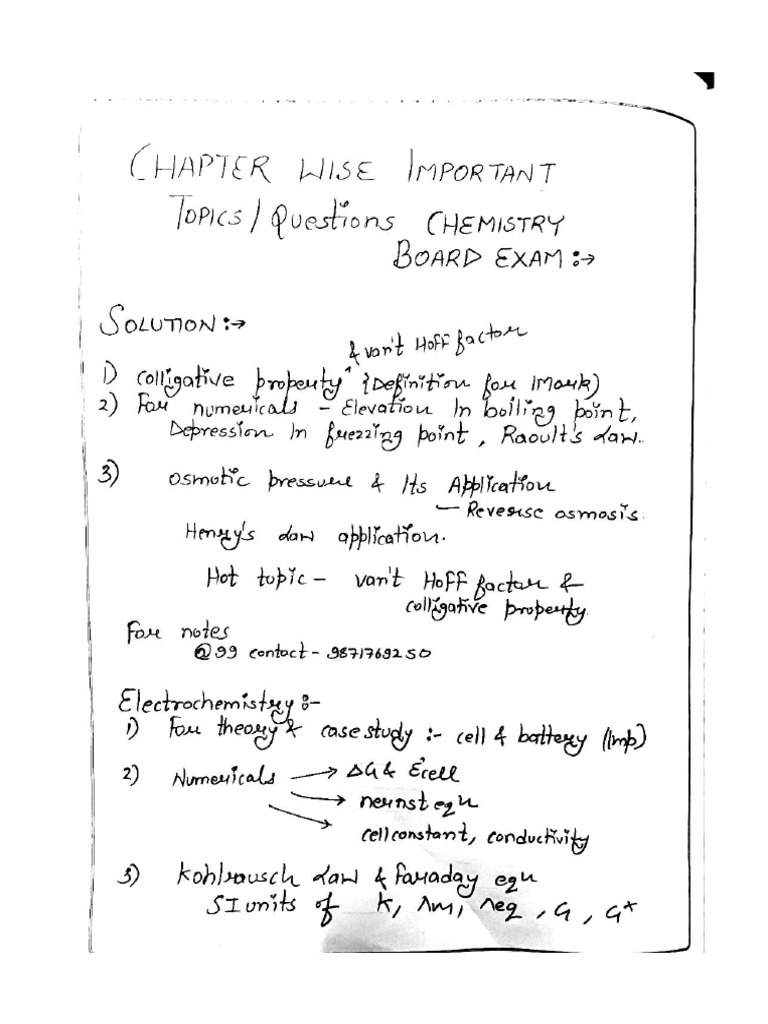 CHAPTER WISE IMPORTANT
TOPICS/Questions CHEMISTRY
BOARD EXAM:→
SOLUTION:→
& van't Hoff factor
1) Colligative property ^ {Definition for 1Mark)
2) For numericals - Elevation In boiling point,
Depression In freezzing point, Raoult's Law.
3) Osmotic pressure & Its Application
- Reverse osmosis.
Henry's Law application.
Hot topic - van't Hoff factor &
colligative property.
For notes
@99 contact - 9871769250
Electrochemistry:-
1) For theory & case study :- cell & battery (Imp)
2) Numericals → ΔG & E°cell
→ nernst eqn
→ cell constant, conductivity
3) Kohlrausch Law & faraday eqn
SI units of K, Λm, Λeq, G, G*